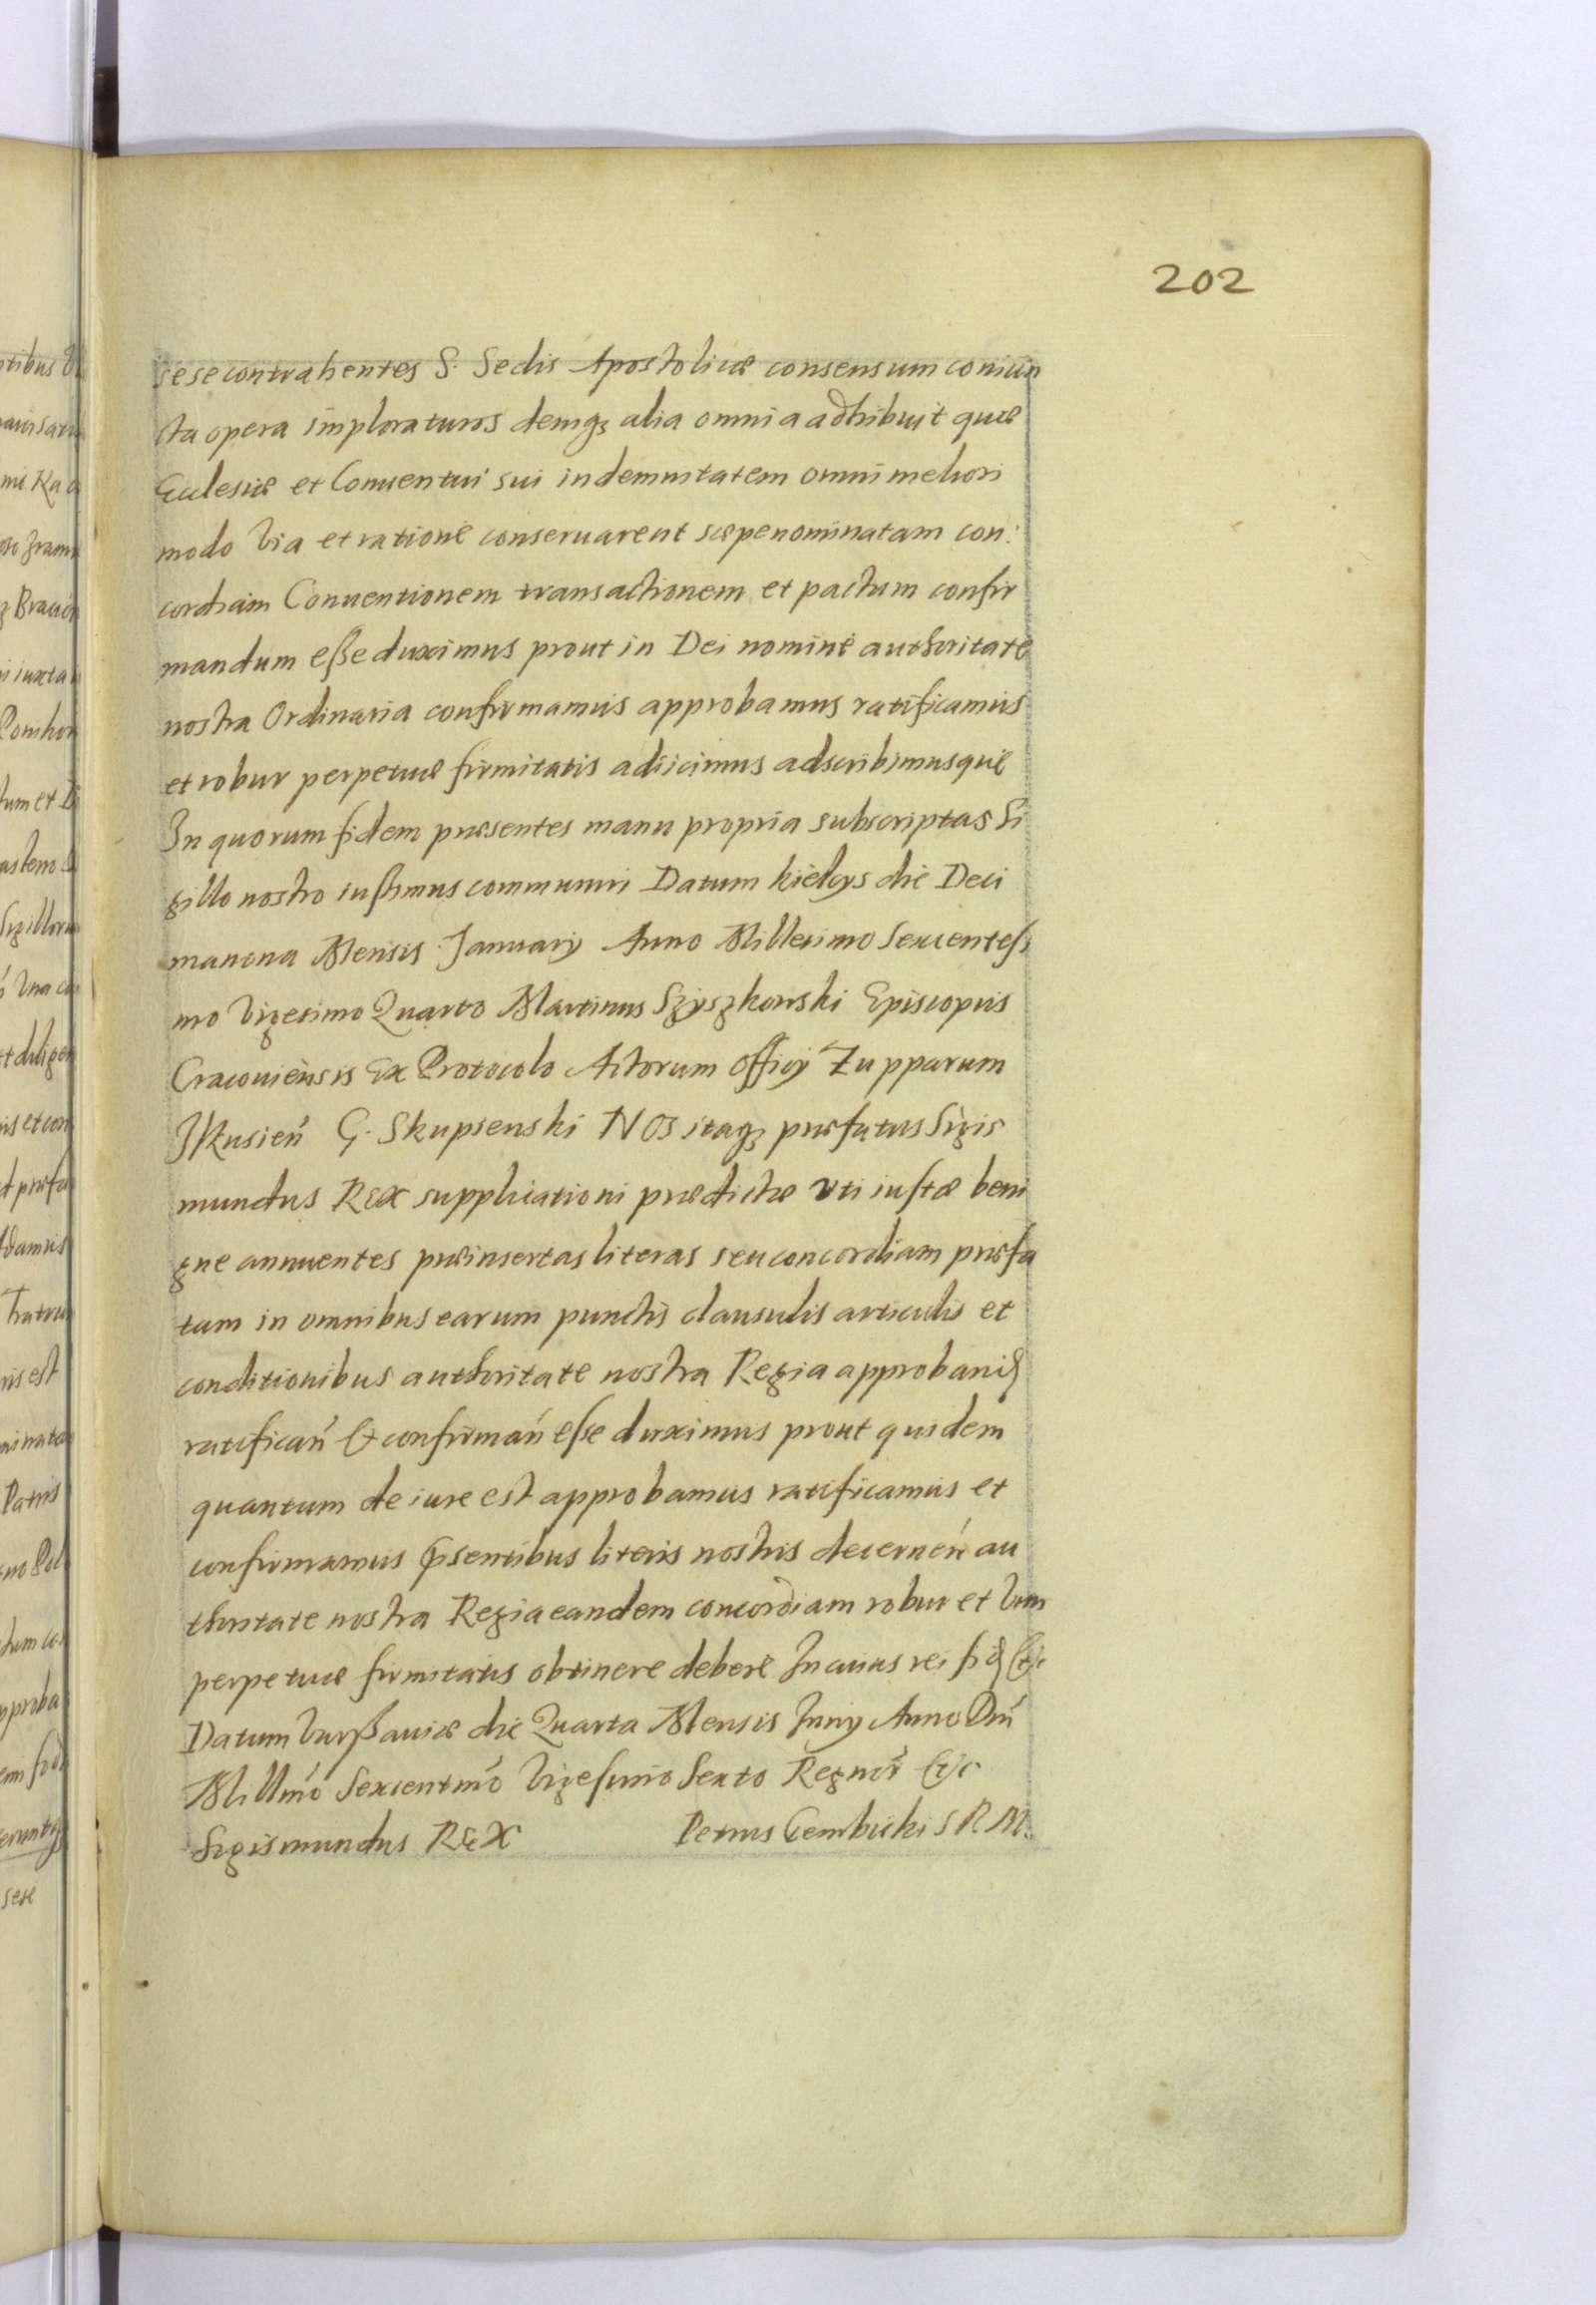 202
sese contrahentes S. Sedis Apostolicæ consensum coniun
cta opera imploraturos deniqꝫ alia omnia adhibuit quæ
Ecclesiæ et Conuentui sui indemnitatem omni meliori
modo Via et ratione conseruarent sæpenominatam con:
cordiam Conuentionem transactionem et pactum confir
mandum eße duximus prout in Dei nomine authoritate
nostra Ordinaria confirmamus approbamus ratificamus
et robur perpetuæ firmitatis adiicimus adscribimusque
In quorum fidem præsentes manu propria subscriptas Si
gillo nostro iussimus communiri Datum kielcys die Deci
manona Mensis Januarij Anno Millesimo Sexcentesi
mo Vigesimo Quarto Martinus Szyszkowski Episcopus
Cracouiensis Ex Protocolo Actorum Officij Zupparum
Ilkusień G. Skupienski NOS itaqꝫ præfatus Sigis
mundus REX supplicationi prædictæ vti iustæ beni
gne annuentes præinsertas literas seu concordiam præfa
tam in omnibus earum punctis clausulis articulis et
conditionibus authoritate nostra Regia approband
ratificań & confirmań esse duximus prout quidem
quantum de iure est approbamus ratificamus et
confirmamus p̃sentibus literis nostris decerneń au
thoritate nostra Regia eandem concordiam robur et Vim
perpetuæ firmitatis obtinere debere In cuius rei fid &c
Datum Varßauiæ die Quarta Mensis Junij Anno Dńi
Millm̃o Sexcentm̃o Vigesimo Sexto Regnor̃ &c
Sigismundus REX Petrus Gembicki S R. M.